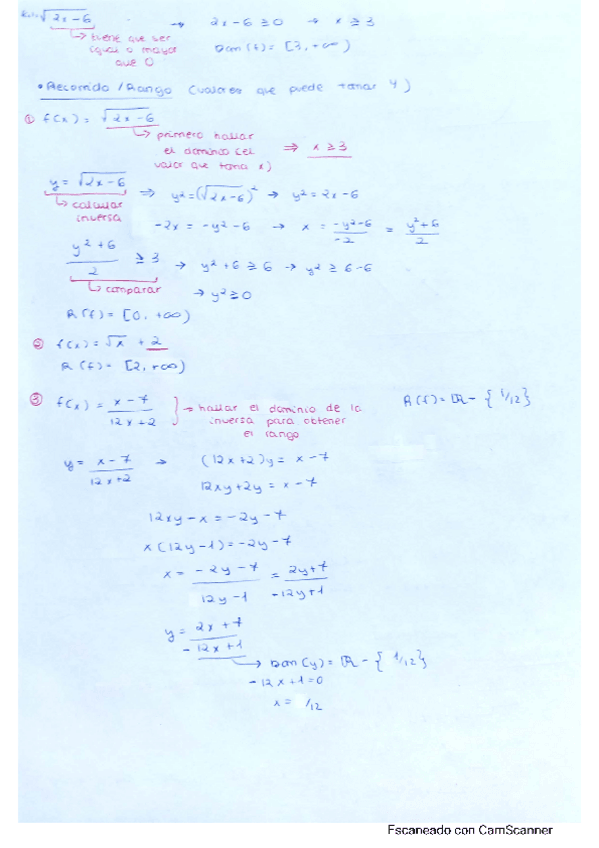 √2x-6 → 2x-6 ≥ 0 → x ≥ 3
↳ tiene que ser igual o mayor que 0
Dom (f) = [3, +∞)
• Recorrido / Rango (valores que puede tomar y)
① f(x) = √2x-6
↳ primero hallar el dominio (el valor que toma x) ⇒ x ≥ 3
y = √2x-6 ⇒ y² = (√2x-6)² → y² = 2x-6
↳ calcular inversa
-2x = -y²-6 → x = -y²-6/-2 = y²+6/2
y²+6/2 ≥ 3 → y²+6 ≥ 6 → y² ≥ 6-6
↳ comparar
→ y² ≥ 0
R(f) = [0, +∞)
② f(x) = √x + 2
R(f) = [2, +∞)
③ f(x) = x-7/12x+2 → hallar el dominio de la inversa para obtener el rango
R(f) = ℝ - {1/12}
y = x-7/12x+2 → (12x+2)y = x-7
12xy+2y = x-7
12xy-x = -2y-7
x(12y-1) = -2y-7
x = -2y-7/12y-1 = 2y+7/-12y+1
y = 2x+7/-12x+1
↳ Dom(y) = ℝ - {1/12}
-12x+1=0
x = 1/12
Escaneado con CamScanner